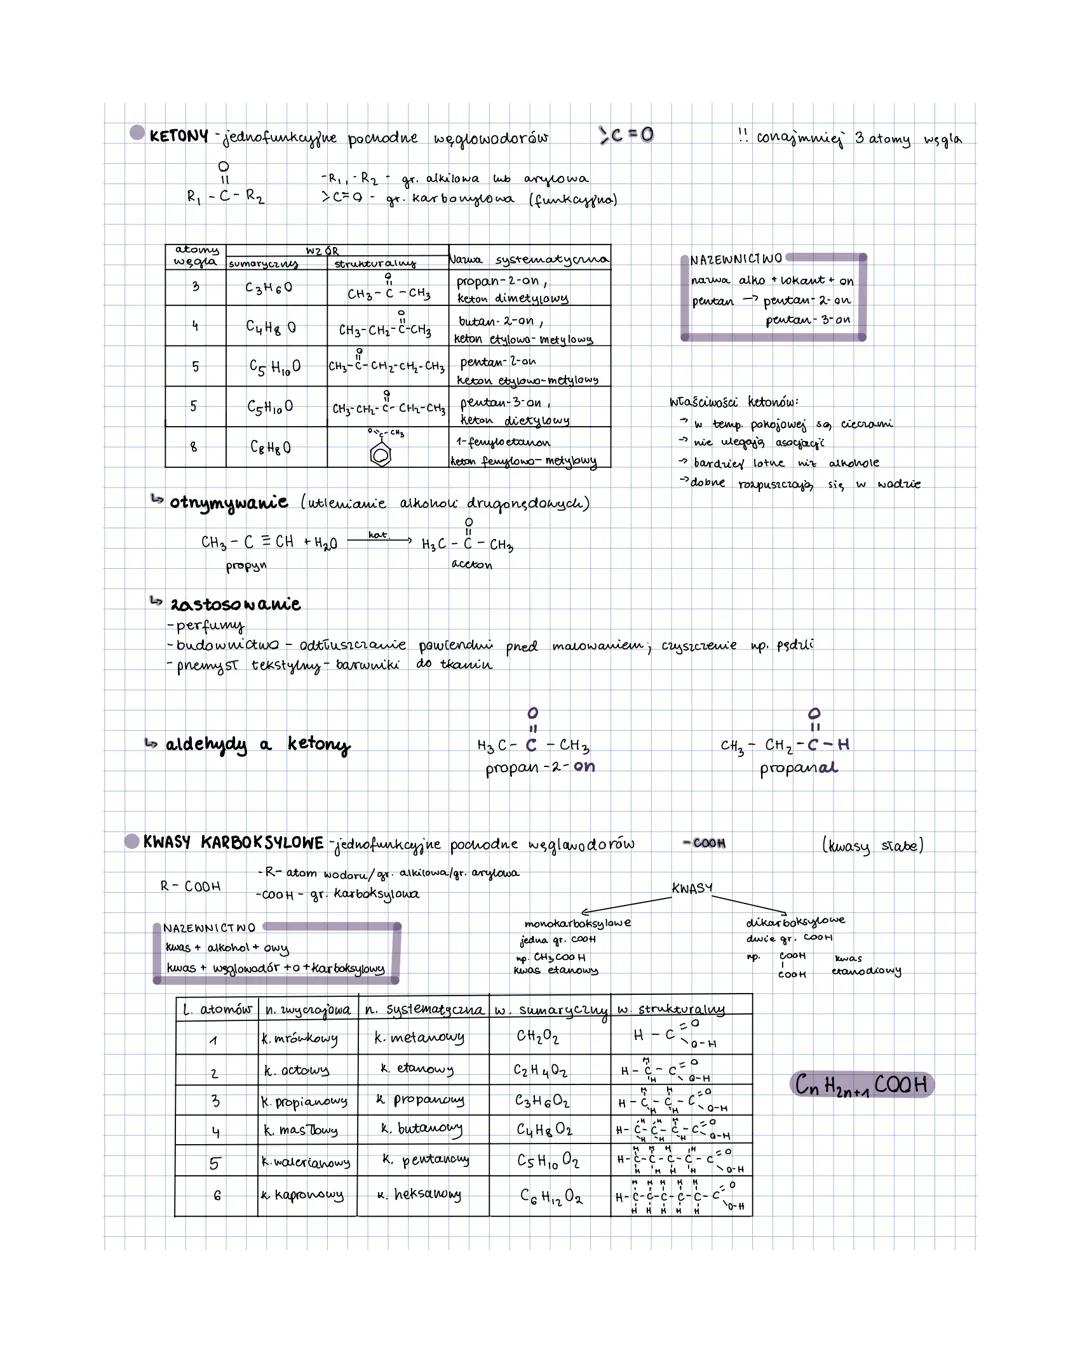 KETONY - jednofunkcyjne pochodne węglowodorów >C=O !! conajmniej 3 atomy węgla
O
||
R₁ - C - R₂
-R₁, -R₂ - gr. alkilowa lub arylowa
>C=O - gr. karbonylowa (funkcyjna)
atomy węgla | WZÓR | Nazwa systematyczna
sumaryczny | strukturalny
3 | C₃H₆O | CH₃-C(=O)-CH₃ | propan-2-on, keton dimetylowy
4 | C₄H₈O | CH₃-CH₂-C(=O)-CH₃ | butan-2-on, keton etylowo-metylowy
5 | C₅H₁₀O | CH₃-C(=O)-CH₂-CH₂-CH₃ | pentan-2-on keton etylowo-metylowy
5 | C₅H₁₀O | CH₃-CH₂-C(=O)-CH₂-CH₃ | pentan-3-on, keton dietylowy
8 | C₈H₈O | O=C-CH₃ | 1-fenyloetanon keton fenylowo-metylowy
NAZEWNICTWO
nazwa alko + lokant + on
pentan → pentan-2-on
pentan-3-on
właściwości ketonów:
→ w temp. pokojowej są cieczami
→ nie ulegają asocjacji
→ bardziej lotne niż alkohole
→ dobrze rozpuszczają się w wodzie
↳ otrzymywanie (utlenianie alkoholi drugorzędowych)
CH₃ - C ≡ CH + H₂O —kat.→ H₃C - C(=O) - CH₃
propyn aceton
↳ zastosowanie
- perfumy
- budownictwo - odtłuszczanie powierzchni przed malowaniem; czyszczenie np. pędzli
- przemysł tekstylny - barwniki do tkanin
↳ aldehydy a ketony
O
||
H₃C - C - CH₃
propan-2-on
O
||
CH₃ - CH₂ - C - H
propanal
KWASY KARBOKSYLOWE - jednofunkcyjne pochodne węglowodorów -COOH (kwasy słabe)
R - COOH
-R - atom wodoru/gr. alkilowa/gr. arylowa
-COOH - gr. karboksylowa
NAZEWNICTWO
kwas + alkohol + owy
kwas + węglowodór + o + karboksylowy
KWASY
monokarboksylowe
jedna gr. COOH
np. CH₃COOH
kwas etanowy
dikarboksylowe
dwie gr. COOH
np. COOH
|
COOH
kwas etanodiowy
l. atomów | n. zwyczajowa | n. systematyczna | w. sumaryczny | w. strukturalny
1 | k. mrówkowy | k. metanowy | CH₂O₂ | H-C(=O)-O-H
2 | k. octowy | k. etanowy | C₂H₄O₂ | H-C(H)(H)-C(=O)-O-H
3 | k. propianowy | k. propanowy | C₃H₆O₂ | H-C(H)(H)-C(H)(H)-C(=O)-O-H
4 | k. masłowy | k. butanowy | C₄H₈O₂ | H-C(H)(H)-C(H)(H)-C(H)(H)-C(=O)-O-H
5 | k. walerianowy | k. pentanowy | C₅H₁₀O₂ | H-C(H)(H)-C(H)(H)-C(H)(H)-C(H)(H)-C(=O)-O-H
6 | k. kapronowy | k. heksanowy | C₆H₁₂O₂ | H-C(H)(H)-C(H)(H)-C(H)(H)-C(H)(H)-C(H)(H)-C(=O)-O-H
CₙH₂ₙ₊₁COOH